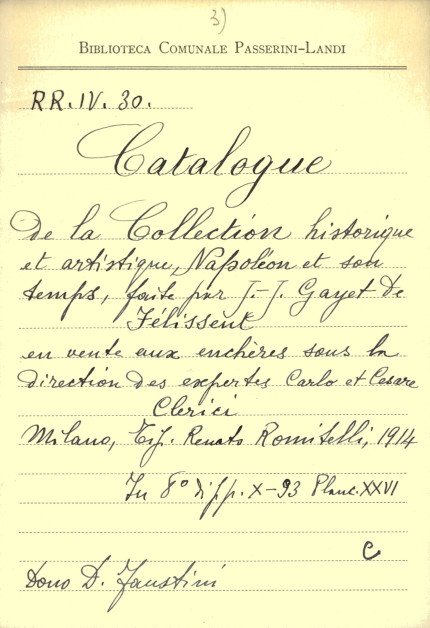 3)
BIBLIOTECA COMUNALE PASSERINI-LANDI
RR.IV.30.
Catalogue
de la Collection historique
et artistique, Napoléon et son
temps, faite par J.-J. Gayet de
Félissent
en vente aux enchères sous la
direction des expertes Carlo et Cesare
Clerici
Milano, Tif. Renato Romitelli, 1914
In 8° di pp. X-93 Planc. XXVI
C
Dono D. Faustini